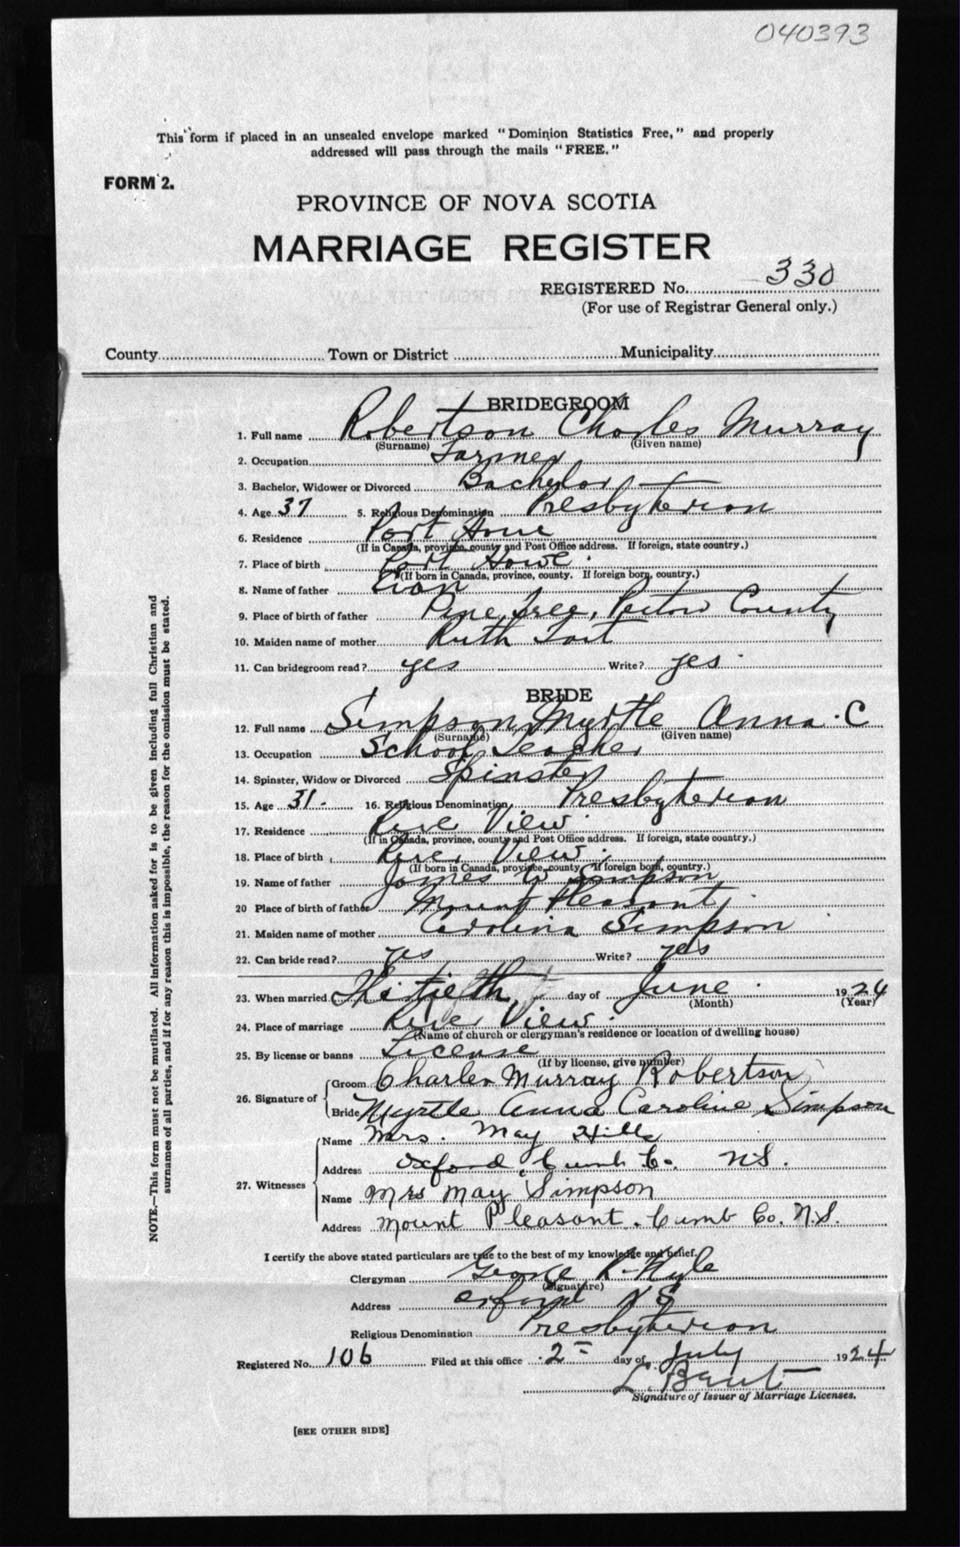 040393
This form if placed in an unsealed envelope marked "Dominion Statistics Free," and properly
addressed will pass through the mails "FREE."
FORM 2.
PROVINCE OF NOVA SCOTIA
MARRIAGE REGISTER
REGISTERED No. 330
(For use of Registrar General only.)
County Town or District Municipality
BRIDEGROOM
1. Full name Robertson Charles Murray
(Surname) (Given name)
2. Occupation Farmer
3. Bachelor, Widower or Divorced Bachelor
4. Age 37 5. Religious Denomination Presbyterian
6. Residence Port Howe
(If in Canada, province, county and Post Office address. If foreign, state country.)
7. Place of birth Port Howe
(If born in Canada, province, county. If foreign born, country.)
8. Name of father
9. Place of birth of father Pine Tree, Pictou County
10. Maiden name of mother Ruth
11. Can bridegroom read? yes Write? yes
BRIDE
12. Full name Simpson Myrtle Anna C
(Surname) (Given name)
13. Occupation School Teacher
14. Spinster, Widow or Divorced Spinster
15. Age 31. 16. Religious Denomination Presbyterian
17. Residence View
(If in Canada, province, county and Post Office address. If foreign, state country.)
18. Place of birth View
(If born in Canada, province, county. If foreign born, country.)
19. Name of father James W Simpson
20 Place of birth of father Mount Pleasant
21. Maiden name of mother Carolina Simpson
22. Can bride read? yes Write? yes
23. When married Thirtieth day of June 1924
(Month) (Year)
24. Place of marriage View
(Name of church or clergyman's residence or location of dwelling house)
25. By license or banns License
(If by license, give number)
26. Signature of
Groom Charles Murray Robertson
Bride Myrtle Anna Caroline Simpson
27. Witnesses
Name Mrs. May Hills
Address Oxford, Cumb Co. N.S.
Name Mrs May Simpson
Address Mount Pleasant. Cumb Co. N.S.
I certify the above stated particulars are true to the best of my knowledge and belief.
Clergyman George R.
(Signature)
Address Oxford N S
Religious Denomination Presbyterian
Registered No. 106 Filed at this office 2 day of July 1924
L. Bent
Signature of Issuer of Marriage Licenses.
[SEE OTHER SIDE]
NOTE.—This form must not be mutilated. All information asked for is to be given including full Christian and
surnames of all parties, and if for any reason this is impossible, the reason for the omission must be stated.